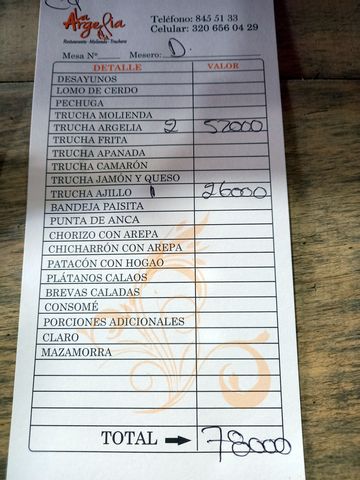 La Argelia
Restaurante - Molienda - Truchera
Teléfono: 845 51 33
Celular: 320 656 04 29
Mesa N° Mesero: D.
DETALLE VALOR
DESAYUNOS
LOMO DE CERDO
PECHUGA
TRUCHA MOLIENDA
TRUCHA ARGELIA 2 52000
TRUCHA FRITA
TRUCHA APANADA
TRUCHA CAMARÓN
TRUCHA JAMÓN Y QUESO
TRUCHA AJILLO 1 26000
BANDEJA PAISITA
PUNTA DE ANCA
CHORIZO CON AREPA
CHICHARRÓN CON AREPA
PATACÓN CON HOGAO
PLÁTANOS CALAOS
BREVAS CALADAS
CONSOMÉ
PORCIONES ADICIONALES
CLARO
MAZAMORRA
TOTAL 78000